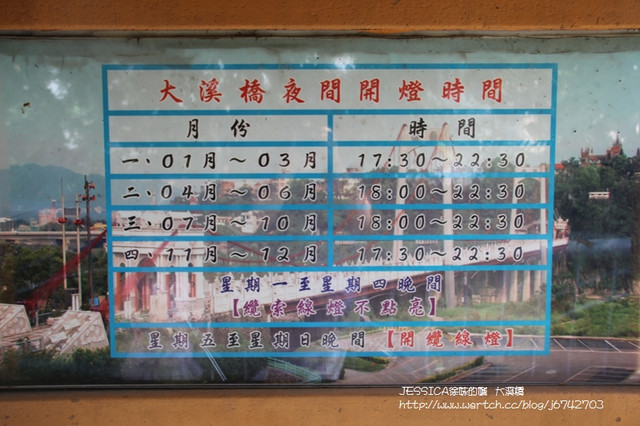 大溪橋夜間開燈時間
月份 時間
一、01月～03月 17:30～22:30
二、04月～06月 18:00～22:30
三、07月～10月 18:00～22:30
四、11月～12月 17:30～22:30
星期一至星期四晚間
【纜索線燈不點亮】
星期五至星期日晚間【開纜線燈】
http://www.wretch.cc/blog/j6742703